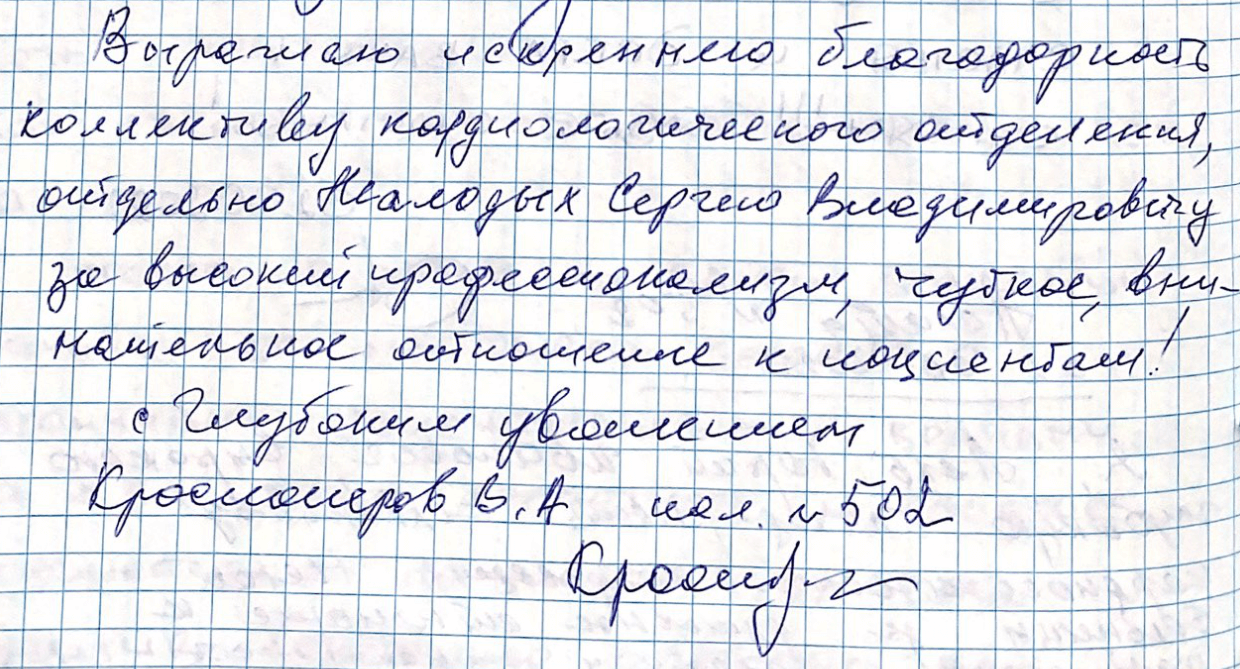 Выражаю искреннюю благодарность
коллективу кардиологического отделения,
отдельно Жалодых Сергею Владимировичу
за высокий профессионализм, чуткое, вни-
мательное отношение к пациентам!
с Глубоким уважением
В.А пал. № 502